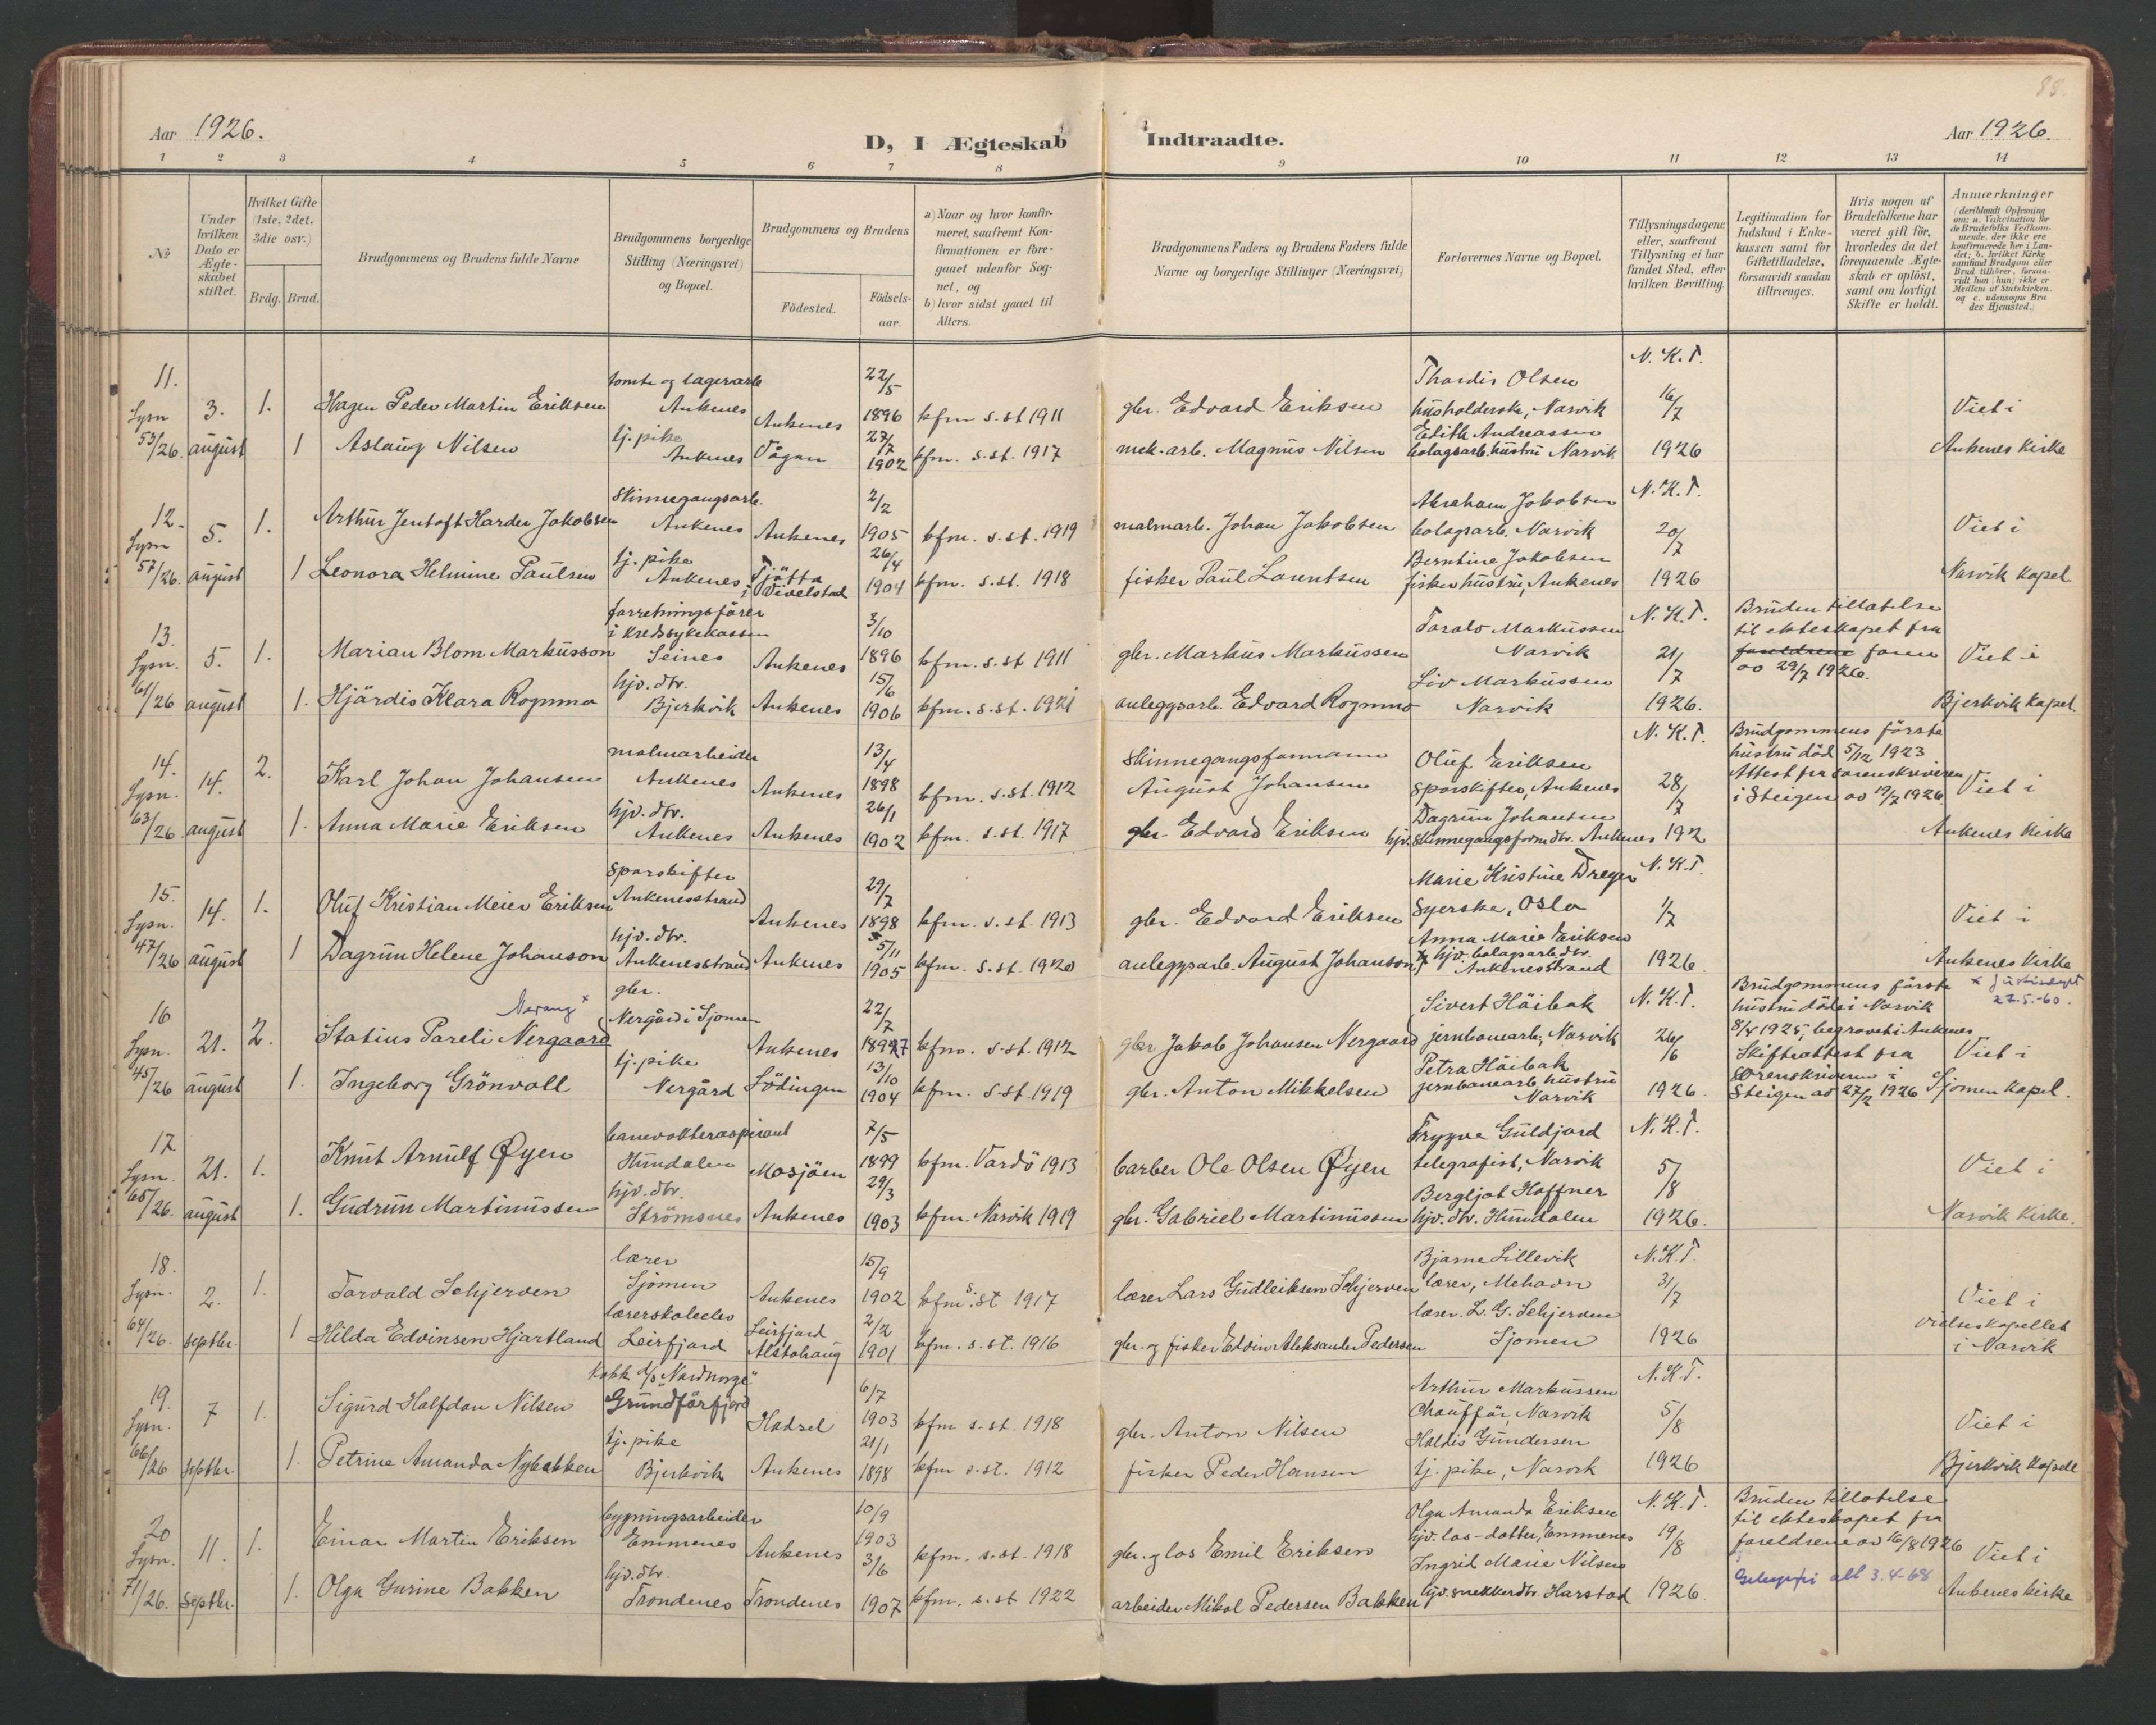 88.
Aar 1926.
D, I Ægteskab
Indtraadte.
Aar 1926.
1 2 3 4 5 6 7 8 9 10 11 12 13 14
No
Under hvilken Dato er Ægteskabet stiftet.
Hvilket Gifte (1ste, 2det, 3die osv.)
Brdg. Brud.
Brudgommens og Brudens fulde Navne
Brudgommens borgerlige Stilling (Næringsvei) og Bopæl.
Brudgommens og Brudens
Födested.
Födsels-aar.
a) Naar og hvor konfirmeret, saafremt Konfirmationen er foregaaet udenfor Sognet, og
b) hvor sidst gaaet til Alters.
Brudgommens Faders og Brudens Faders fulde Navne og borgerlige Stillinger (Næringsvei)
Forlovernes Navne og Bopæl.
Tillysningsdagene eller, saafremt Tillysning ei har fundet Sted, efter hvilken Bevilling.
Legitimation for Indskud i Enkekassen samt for Giftetilladelse, forsaavidt saadan tiltrænges.
Hvis nogen af Brudefolkene har været gift för, hvorledes da det foregaaende Ægteskab er oplöst, samt om lovligt Skifte er holdt.
Anmærkninger
(deriblandt Oplysning om: a. Vakcination for de Brudefolks Vedkommende, der ikke ere konfirmerede her i Landet; b. hvilket Kirkesamfund Brudgom eller Brud tilhörer, forsaavidt han (hun) ikke er Medlem af Statskirken. og c. udensogns Brudes Hjemsted.)
11. Lysn 53/26. 3. august 1. Hagen Peder Martin Eriksen tomte og lagerarb Ankenes Ankenes 22/5 1896 kfm s.st 1911 gbr. Edvard Eriksen Thordis Olsen husholderske, Narvik N.K.T. 16/7 1926 Viet i Ankenes Kirke
1 Aslaug Nilsen tj. pike Ankenes Vågan 27/7 1902 kfm. s.st. 1917 mek. arb. Magnus Nilsen Edith Andreassen bolagsarb. hustru Narvik
12. Lysn 57/26. 5. august 1. Arthur Jentoft Harder Jakobsen Skinnegangsarb. Ankenes Ankenes 2/2 1905 kfm. s.st. 1919 malmarb. Johan Jakobsen Abraham Jakobsen bolagsarb. Narvik N.K.T. 20/7 1926 Viet i Narvik Kapel
1 Leonora Helmine Paulsen tj. pike Ankenes Tjötta i Vivelstad 26/4 1904 kfm. s.st. 1918 fisker Paul Lorentsen Berntine Jakobsen fisker hustru, Ankenes
13. Lysn. 61/26 5. august 1. Marian Blom Markusson forretningsförer i Kredssykekassen Seines Ankenes 3/10 1896 kfm. s.st 1911 gbr. Markus Markussen Toralv Markussen Narvik N.K.T. 21/7 1926. Bruden tillatelse til ekteskapet fra foreldrene faren av 29/7 1926. Viet i Bjerkvik Kapel.
1. Hjärdis Klara Rognmo hjv. dtr. Bjerkvik Ankenes 15/6 1906 kfm. s.st. 1921 anleggsarb. Edvard Rognmo Liv Markussen Narvik
14. Lysn. 63/26 14. august 2. Karl Johan Johansen malmarbeider Ankenes Ankenes 13/4 1898 kfm. s.st. 1912 Skinnegangsformann August Johansen Oluf Eriksen Sporskifter, Ankenes N.K.T. 28/7 192 Brudgommens förste hustru död 5/12 1923 Attest fra sorenskriveren i Steigen av 19/7 1926. Viet i Ankenes Kirke
1. Anna Marie Eriksen hjv. dtr. Ankenes Ankenes 26/1 1902 kfm. s.st. 1917 gbr. Edvard Eriksen Dagrun Johansen hjv. Skinnegangsform. dtr. Ankenes
15. Lysn. 47/26 14. august 1. Oluf Kristian Meier Eriksen Sporskifter Ankenesstrand Ankenes 29/7 1898 kfm. s.st. 1913 gbr. Edvard Eriksen Marie Kristine Dreyer Syerske, Oslo N.K.T. 1/7 1926. Viet i Ankenes Kirke
1 Dagrun Helene Johanson hjv. dtr. Ankenesstrand Ankenes 5/11 1905 kfm. s.st. 1920 anleggsarb. August Johanson Anna Marie Eriksen hjv. bolagsarb. dtr. Ankenesstrand
16 Lysn. 45/26 21. august 2. Nerang x Statius Pareli Nergaard gbr. Nergård i Sjomen Ankenes 22/7 1897 kfm. s.st. 1912 gbr Jakob Johansen Nergaard Sivert Höibak jernbanearb., Narvik N.K.T. 26/6 1926. Brudgommens förste hustru döde i Narvik 8/8 1925, begravet i Ankenes Skifteattest fra Sorenskriveren i Steigen av 27/2 1926 x Justisdept 27.5.-60. Viet i Sjomen Kapel.
1. Ingeborg Grönvoll tj. pike Nergård Lödingen 13/10 1904 kfm. s.st. 1919 gbr. Anton Mikkelsen Petra Höibak jernbanearb. hustru Narvik
17. Lysn. 65/26. 21. august 1. Knut Arnulf Øyen banevokteraspirant Hundalen Mosjöen 7/5 1899 kfm. Vardö 1913 barber Ole Olsen Øyen Trygve Guldjord telegrafist, Narvik N.K.T. 5/8 1926. Viet i Narvik Kirke.
1. Gudrun Martinussen hjv. dtr. Strömsnes Ankenes 29/3 1903 kfm. Narvik 1919 gbr. Gabriel Martinussen Bergljot Hoffner hjv. dtr. Hundalen
18. Lysn. 64/26. 2. septbr. 1. Torvald Schjerven lærer Sjomen Ankenes 15/9 1902 kfm s.st 1917 lærer Lars Gudleiksen Schjerven Bjarne Lillevik lærer, Mehavn N.K.T. 31/7 1926 Viet i vielseskapellet i Narvik
1 Hilda Edvinsen Hjartland lærerskoleelev Leirfjord Leirfjord Alstahaug 2/2 1901 kfm. s.st. 1916 gbr. og fisker Edvin Aleksander Pedersen lærer. L. G. Schjerven Sjomen
19. Lysn. 66/26 7 septbr. 1. Sigurd Halfdan Nilsen kokk d/s "Nordnorge" Grundförfjord Hadsel 6/7 1903 kfm s.st. 1918 gbr. Anton Nilsen Arthur Markussen Chaufför, Narvik N.K.T. 5/8 1926 Viet i Bjerkvik Kapell
1. Petrine Amanda Nybakken tj. pike Bjerkvik Ankenes 21/1 1898 kfm s.st. 1912 fisker Peder Hansen Haldis Gundersen tj. pike, Narvik
20 Lysn. 71/26. 11. septbr. 1. Einar Martin Eriksen bygningsarbeider Emmenes Ankenes 10/9 1903 kfm. s.st. 1918 gbr. og los Emil Eriksen Olga Amanda Eriksen hjv. los-datter, Emmenes N.K.T. 19/8 1926 Bruden tillatelse til ekteskapet fra foreldrene av 16/8 1926 Viet i Ankenes kirke
1. Olga Gurine Bakken hjv. dtr. Trondenes Trondenes 3/6 1907 kfm. s.st 1922 arbeider Mikal Pedersen Bakken Ingrid Marie Nilsen hjv. snekkerdtr. Harstad 3.4-68